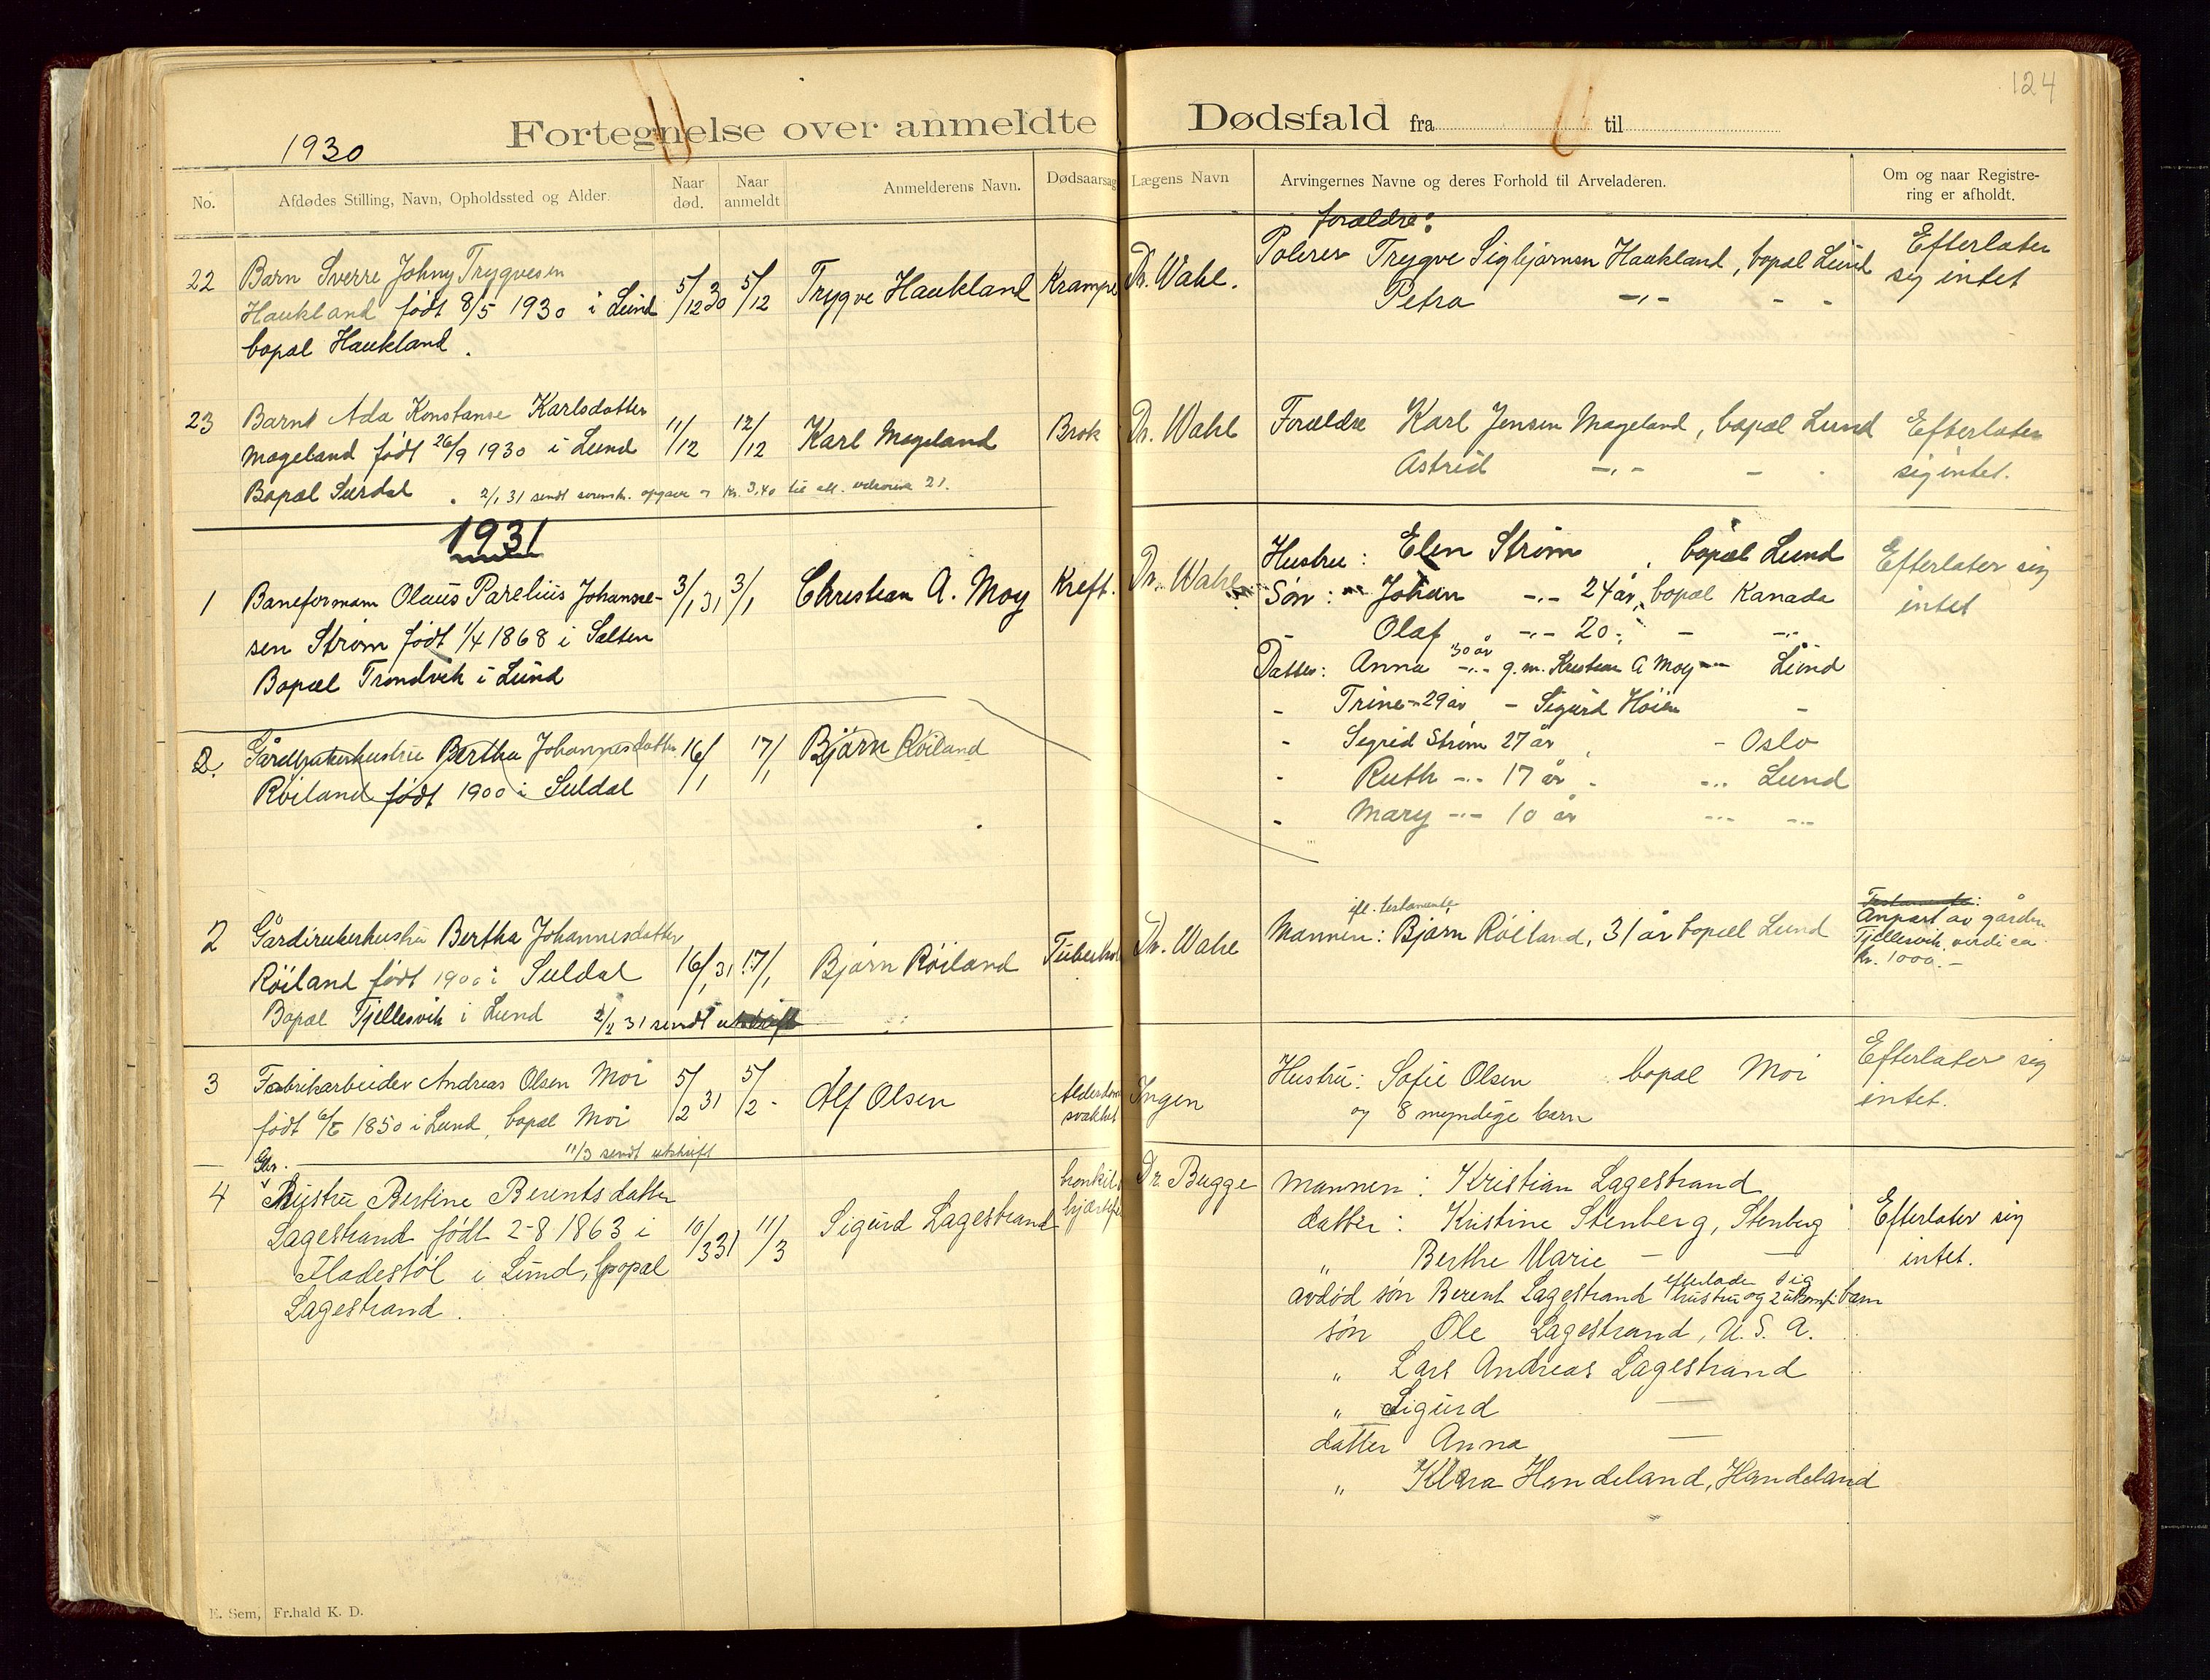 124
1930
Fortegnelse over anmeldte Dødsfald fra til
No.
Afdødes Stilling, Navn, Opholdssted og Alder.
Naar død.
Naar anmeldt
Anmelderens Navn.
Dødsaarsag
Lægens Navn
Arvingernes Navne og deres Forhold til Arveladeren.
Om og naar Registre-
ring er afholdt.
22 Barn Sverre Johny Trygvesen
Haukland født 8/5 1930 i Lund
bopæl Haukland.
5/12 30 5/12 Trygve Haukland Krampe Dr. Wahl.
forældre:
Polerer Trygve Sigbjørnsen Haukland, bopæl Lund
Petra -"- - -
Efterlater
sig intet
23 Barnet Ada Konstanse Karlsdatter
Mageland født 26/9 1930 i Lund
Bopæl Surdal . 2/1 31 sendt sorensk. opgave Kr. 3,40 til 21.
11/12 12/12 Karl Mageland Brok Dr. Wahl
Forældre Karl Jensen Mageland, bopæl Lund
Astrid -"- -
Efterlater
sig intet.
1931
1 Baneformann Olaus Parelius Johanne-
sen Strøm født 1/4 1868 i Salten
Bopæl Trondvik i Lund
3/1 31 3/1 Christian A. Moy Kreft. Dr. Wahl
Hustru: Elen Strøm, bopæl Lund
Søn: Johan -"- 24 år, bopæl Kanada
- Olaf -"- 20 - -"-
Datter: Anna 30 år -"- g.m. Kristian A Moy -"- Lund
- Trine - 29 år - Sigurd Höien -
- Sigrid Strøm 27 år - Oslo
- Ruth -"- 17 år - -"- Lund
- Mary -"- 10 år -"- -"-
Efterlater sig
intet
2. Gårdbrukerhustru Bertha Johannesdatter
Røiland født 1900 i Suldal
16/1 17/1 Bjørn Røiland
2 Gårdbrukerhustru Bertha Johannesdatter
Röiland født 1900 i Suldal
Bopæl Tjellesvik i Lund 2/2 31 sendt utskrift
16/1 31 17/1 Bjørn Röiland Tuberkul Dr. Wahl
ifl. testamente
Mannen: Bjørn Röiland, 31 år bopæl Lund
Testamente:
Anpart av gården
Tjellesvik, verdi ca.
Kr. 1000.-
3 Fabrikarbeider Andreas Olsen Moi
født 1850 i Lund, bopæl Moi
11/3 sendt utskrift
5/2 31 5/2 - Alf Olsen Alderdoms
svakhet Ingen
Hustru: Sofie Olsen bopæl Moi
og 8 myndige barn
Efterlater sig
intet.
4 Hustru Bertine Berentsdatter
Lagestrand født 2-8 1863 i
Fladestøl i Lund, bopæl
Lagestrand.
10/3 31 11/3 Sigurd Lagestrand Dr. Bugge
Mannen: Kristian Lagestrand
datter: Kristine Stenberg, Stenberg
" Berthe Marie - -
avdød søn Berent Lagestrand efterlade sig
hustru og 2 ukonf. barn
søn Ole Lagestrand, U.S.A.
" Lars Andreas Lagestrand
" Sigurd -
datter Anna -
" Klara Handeland, Handeland
Efterlater sig
intet.
E. Sem, Fr.hald K. D.